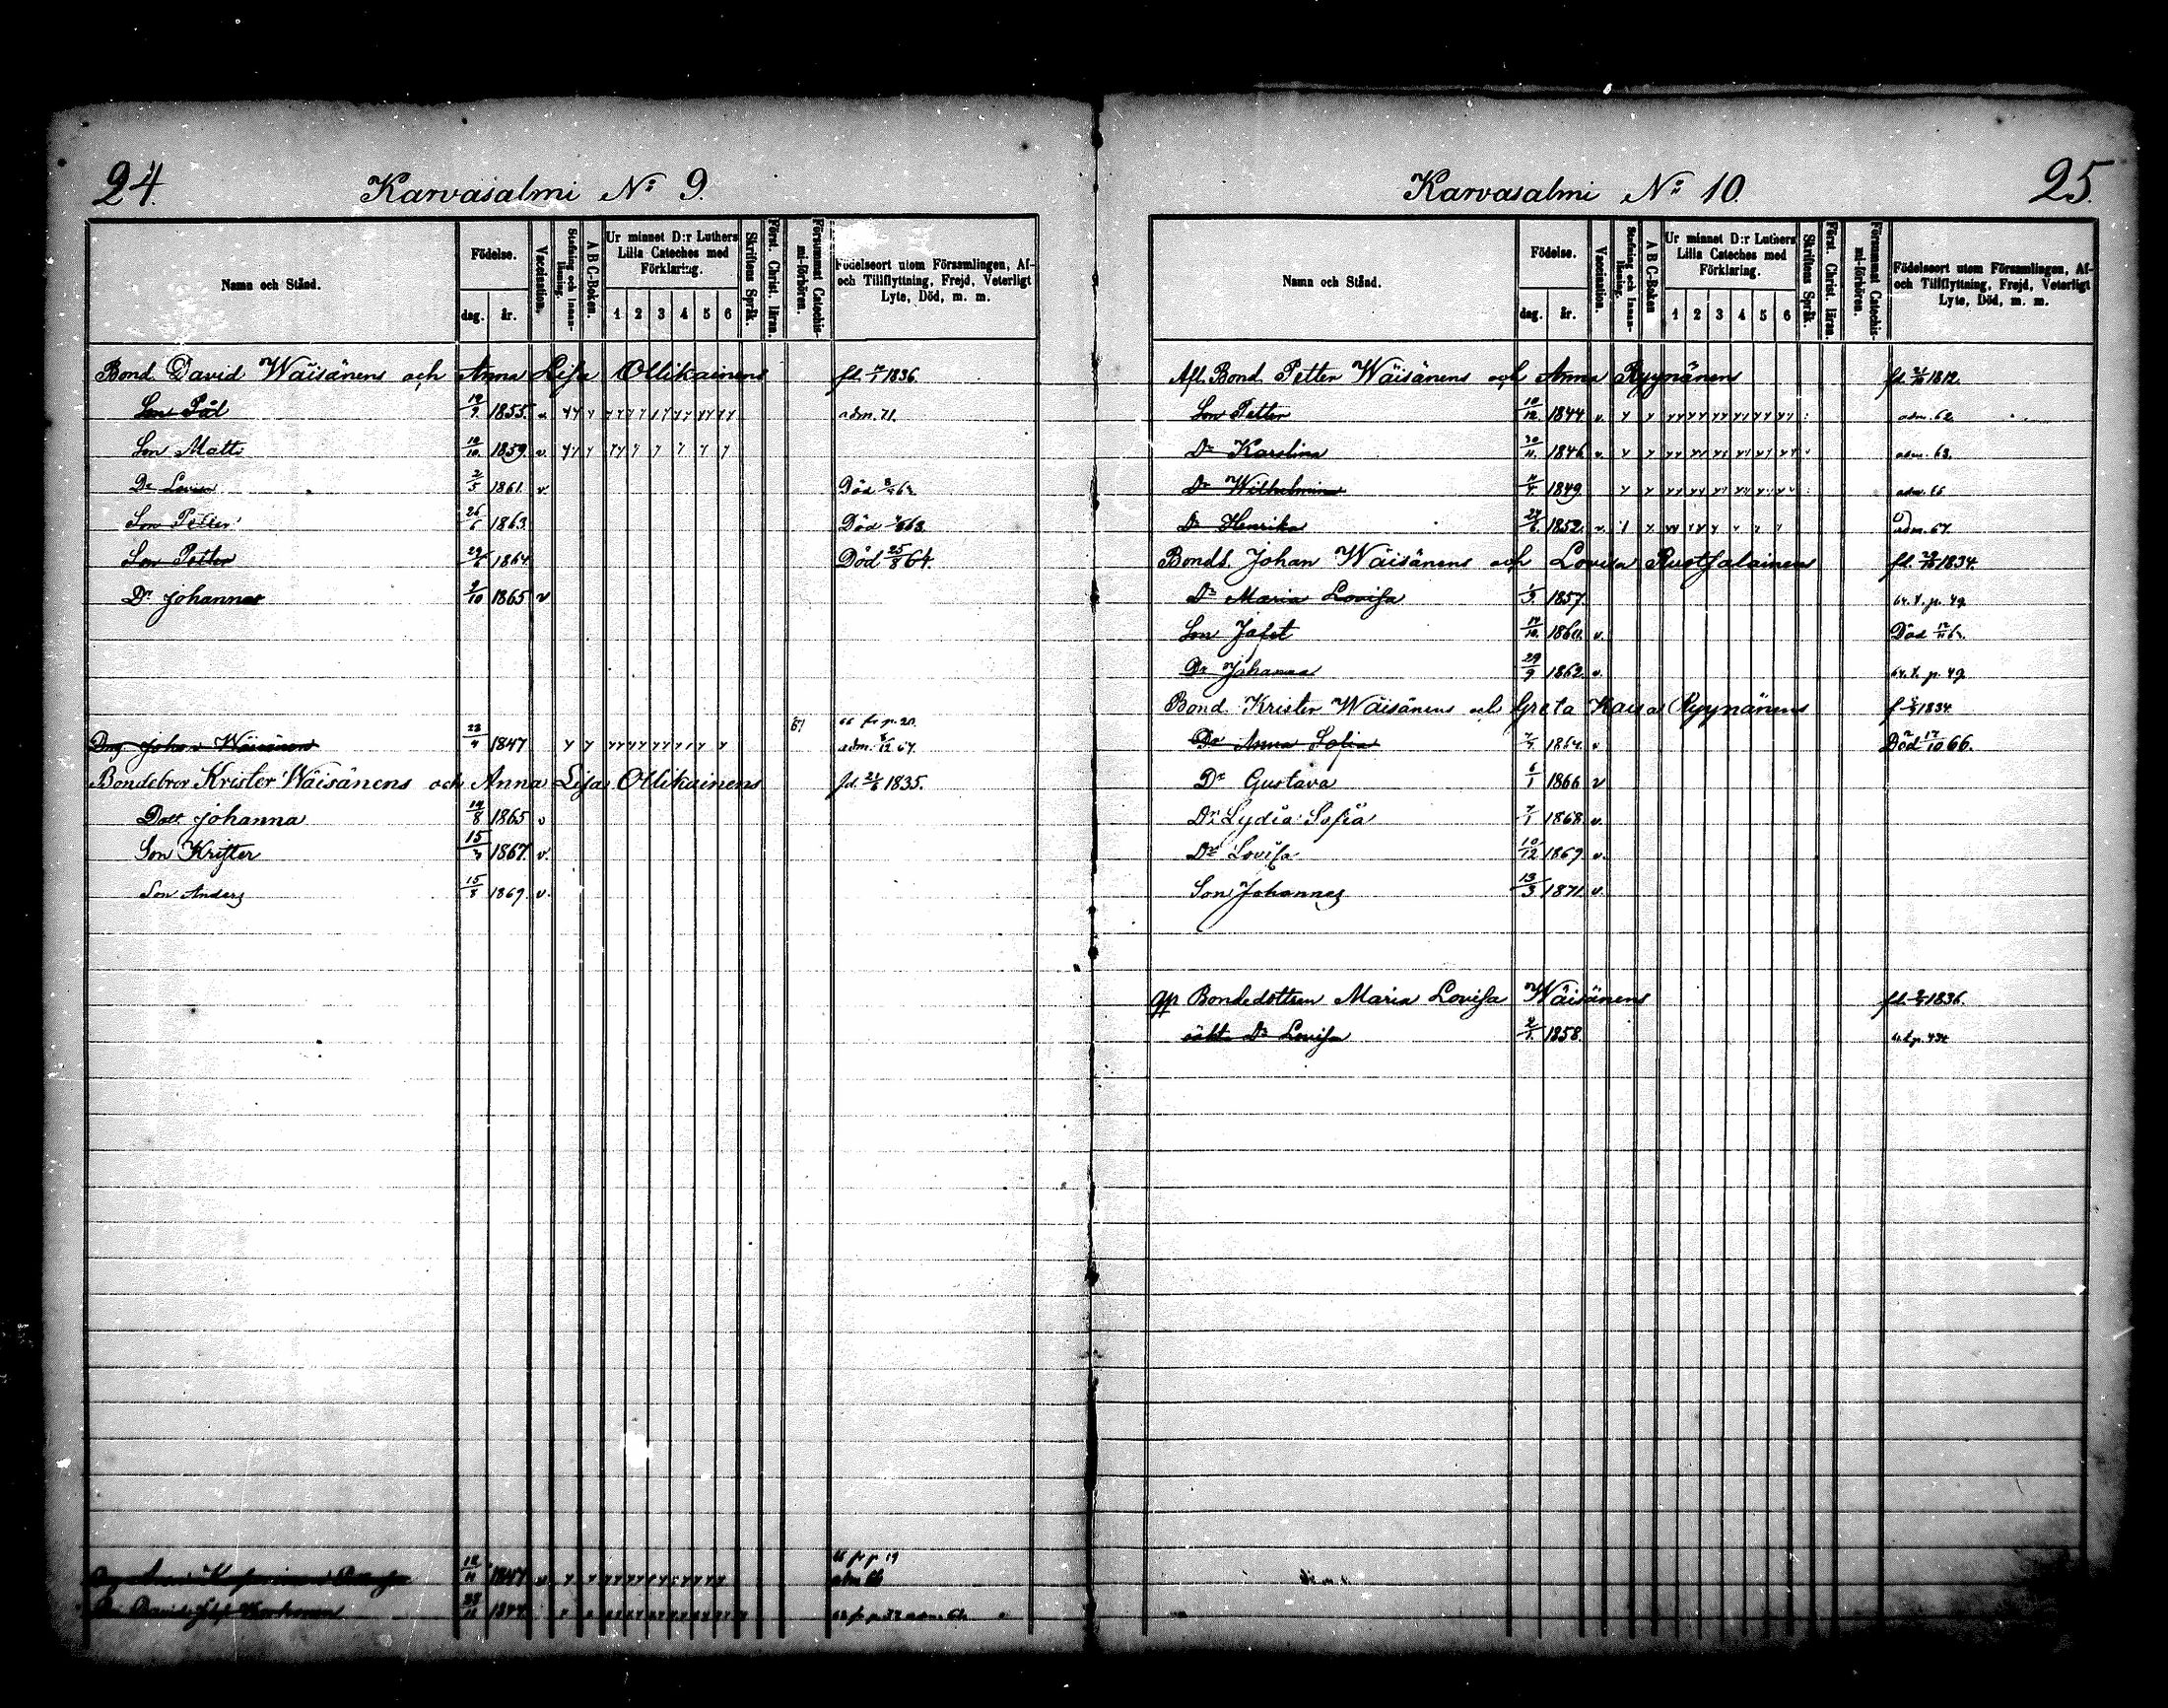 24.
Karvasalmi No 9.
Namn och Stånd.
Födelse.
dag. år.
Vaccination.
Stafning och Innanläsning.
A B C-Boken.
Ur minnet D:r Luthers Lilla Cateches med Förklaring.
1 2 3 4 5 6
Skriftens Språk.
Först. Christ. läran.
Försummat Catechismi-förhören.
Födelseort utom Församlingen, Af- och Tillflyttning, Frejd, Veterligt Lyte, Död, m. m.
Bond. David Wäisänens och Anna Lisa Ollikainens 1836.
Son Pål 1855. adm. 71.
Son Matts 10/10 1859. v.
Dr Lovisa 2/5 1861. v. Död
Son Petter 26/6 1863. Död
Son Petter 1864. Död 25/8 64.
Dr Johanna 9/10 1865 v
66 fr. p. 20.
Johan Wäisänen 23/4 1847 67 adm. 67.
Bondebror Krister Wäisänens och Anna Lisa Ollikainens fd. 1835.
Dott. Johanna 19/8 1865 v
Son Krister 15/3 1867. v.
Son Anders 15/8 1869. v.
66 fr p 19
1847 v adm 66
1844
25.
Karvasalmi No 10.
Namn och Stånd.
Födelse.
dag. år.
Vaccination.
Stafning och Innanläsning.
A B C-Boken
Ur minnet D:r Luthers Lilla Cateches med Förklaring.
1 2 3 4 5 6
Skriftens Språk.
Först. Christ. läran.
Försummat Catechismi-förhören.
Födelseort utom Församlingen, Af- och Tillflyttning, Frejd, Veterligt Lyte, Död, m. m.
Afl. Bond. Petter Wäisänens och Anna Ryynänens 1812.
Son Petter 10/12 1844 v. adm. 62
Dr Karolina 30/11 1846 v. adm. 63.
Dr Wilhelmina 1849. adm. 66
Dr Henrika 24/6 1852. v. adm. 67.
Bonds. Johan Wäisänens och Lovisa Ruotsalainens 1834.
Dr Maria Lovisa 1857. 64. t. p. 49.
Son Jafet 1860. v. Död
Dr Johanna 29/9 1862 v. 64. t. p. 49
Bond. Krister Wäisänens och Greta Kaisa Ryynänens 1834
Dr Anna Sofia 1864. v Död 17/10 66.
Dr Gustava 6/1 1866 v
Dr Lydia Sofia 7/1 1868. v.
Dr Lovisa 10/12 1869 v.
Son Johannes 13/3 1871. v.
Bondedottren Maria Lovisa Wäisänens 1836.
oäkta Dr Lovisa 1858.